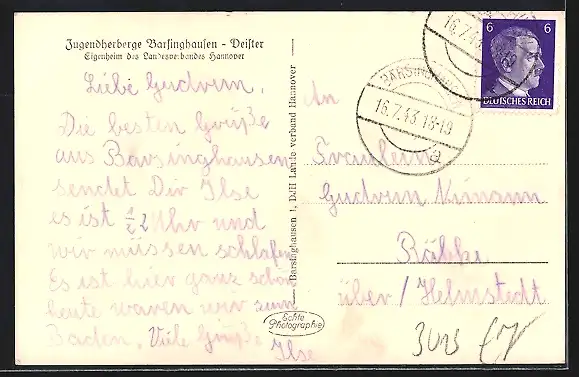 Jugendherberge Barsinghausen - Deister
Eigenheim des Landesverbandes Hannover
Liebe Gudrun,
Die besten Grüße
aus Barsinghausen
sendet Dir Ilse
es ist ½2 Uhr und
wir müssen schlafen
Es ist hier ganz schön
heute waren wir zum
Baden, Viele Grüße
Ilse
Echte
Photographie
Barsinghausen 1, DJH Landesverband Hannover
BARSINGHAUSEN
16.7.43 18-19
a
6 6
DEUTSCHES REICH
An
Fräulein
Gudrun
Räbke
über / Helmstedt